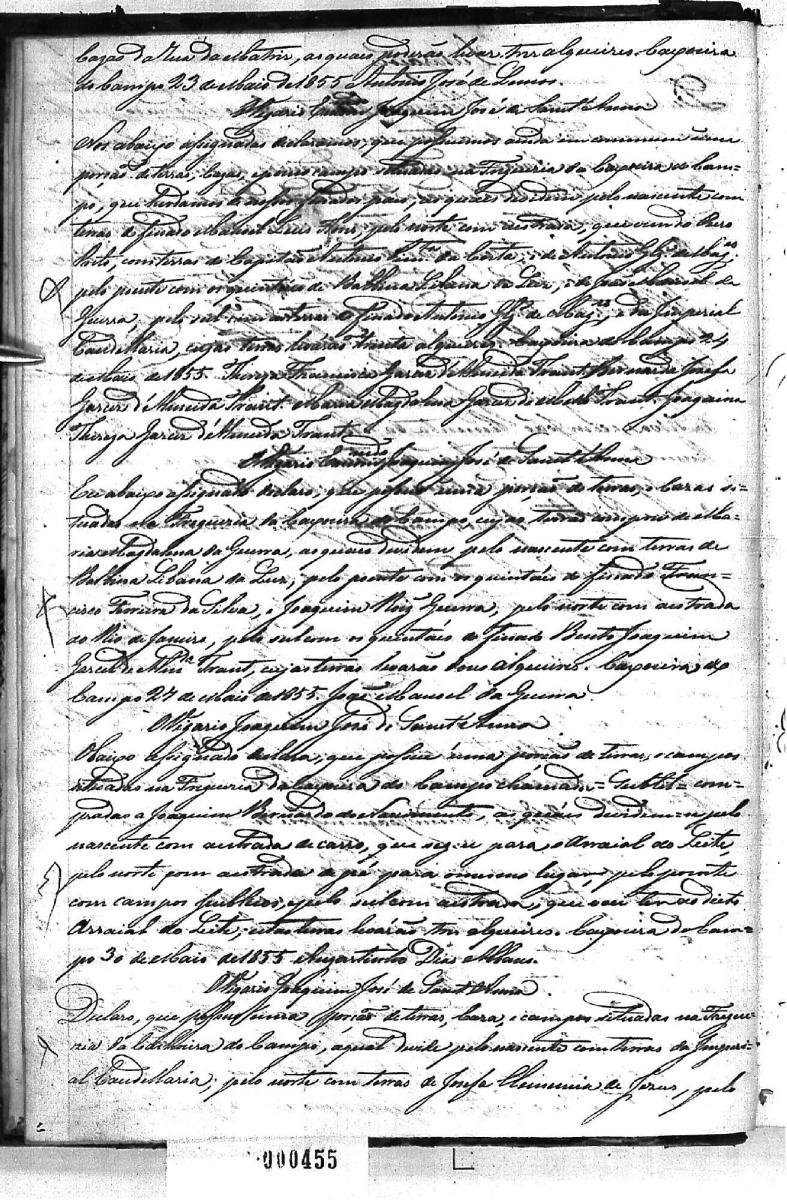 Cazas da Rua da Matriz, as quaes poderão levar tres alqueires. Caxoeira
do Campo 23 de Maio de 1855 Antonio José de Lemos.
O Vigario Joaquim José de Sant'Anna
Nos abaixo assignadas declaramos, que possuimos ainda em commum uma
porsão de terras, Cazas, e campo situadas na Freguezia da Caxoeira do Cam=
po, que herdamos de nossos finados pais, as quaes dividem pelo nascente com
terras do finado Manoel Luis, pelo norte com a estrada, que vem do Ouro
Preto, com terras do Capitão Antonio da Costa, e de Antonio Glz' de Mag.es
pelo poente com os quintaes de Balbina Libania da Luz, e de João Manoel da
Guerra, pelo sul com as terras do finado Antonio Glz' de Mag.es, e da Imperial
Caudellaria, cujas terras levarão trinta alqueires. Caxoeira do Campo 24
de Maio de 1855. Thereza Francisca Garcez d'Almeida Trant. Bernarda Josefa
Garcez d'Almeida Trant. Maria Magdalena Garcez de Trant. Joaquina
Thereza Garcez d'Almeida Trant
O Vigario Joaquim José de Sant'Anna
Eu abaixo assignado declaro, que possuo uma porsão de terras, e Cazas si=
tuadas na Freguezia da Caxoeira do Campo, cujas terras comprei de Ma=
ria Magdalena da Guerra, as quaes dividem pelo nascente com terras de
Balbina Libania da Luz, pelo poente com os quintáes do finado Fran=
cisco Ferreira da Silva, e Joaquim Roiz Guerra, pelo norte com a estrada
do Rio de Janeiro, pelo sul com os quintáes do finado Bento Joaquim
Garcez de Alm.da Trant, cujas terras levarão dous alqueires. Caxoeira do
Campo 27 de Maio de 1855. João Manoel da Guerra
O Vigario Joaquim José de Sant'Anna
O abaixo assignado declara, que possue uma porsão de terras, e campos
situadas na Freguezia da Caxoeira do Campo chamada = = com=
pradas a Joaquim Bernardo do Nascimento, as quáes dividem-se pelo
nascente com a estrada de carro, que segue para o Arraial do Leite,
pelo norte com a estrada de pé para o mesmo lugar, pelo poente
com campos publicos, e pelo sul com a estrada, que vai ter ao dicto
Arraial do Leite, estas terras levarão tres alqueires. Caxoeira do Cam=
po 30 de Maio de 1855 Agostinho Dias
O Vigario Joaquim José de Sant'Anna
Declaro, que possuo uma porsão de terras, Caza, e campos situadas na Fregue=
zia da Caxoeira do Campo, a qual divide pelo nascente com terras da Imperi=
al Caudellaria; pelo norte com terras de Josefa Clemencia de Jezus, pelo
000455